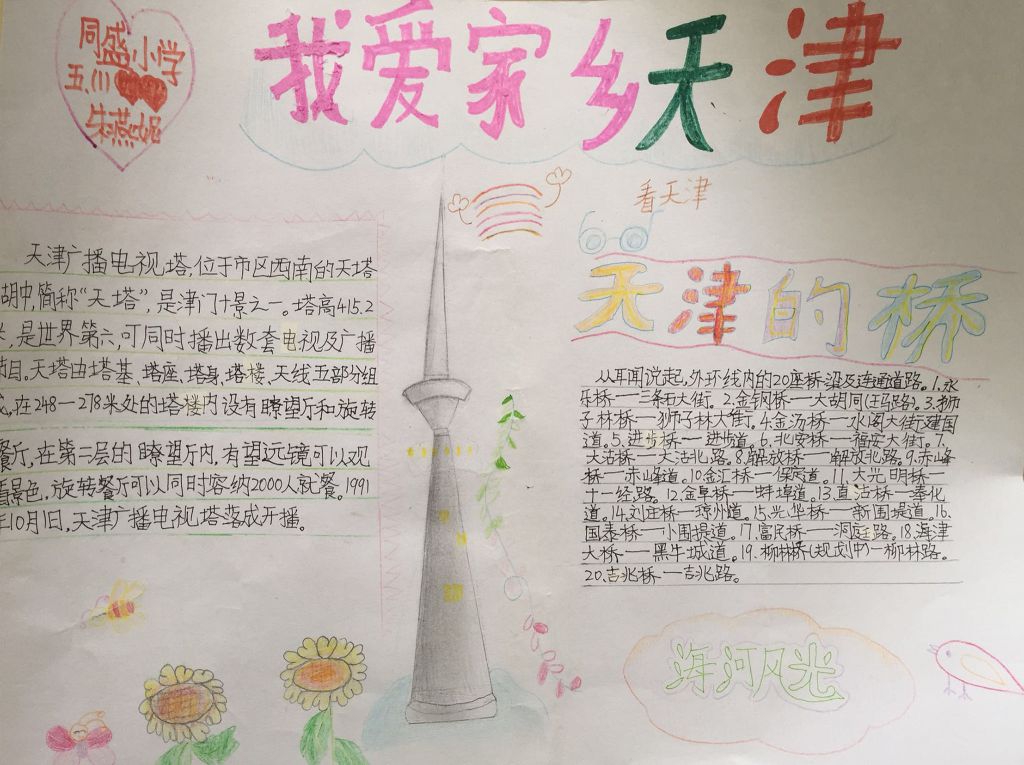 同盛小学
五.川
朱燕妮
我爱家乡天津
看天津
天津广播电视塔,位于市区西南的天塔
湖中,简称“天塔”,是津门十景之一。塔高415.2
米,是世界第六,可同时播出数套电视及广播
节目。天塔由塔基、塔座、塔身、塔楼、天线五部分组
成,在248—278米处的塔楼内设有瞭望厅和旋转
餐厅,在第二层的瞭望厅内,有望远镜可以观
看景色,旋转餐厅可以同时容纳2000人就餐。1991
年10月1日,天津广播电视塔落成开播。
天津的桥
从耳闻说起,外环线内的20座桥梁及连通道路。1.永
乐桥——三条石大街。2.金钢桥——大胡同(王马路)。3.狮
子林桥——狮子林大街。4.金汤桥—水阁大街建国
道。5.进步桥——进步道。6.北安桥—福安大街。7.
大沽桥—大沽北路。8.解放桥——解放北路。9.赤峰
桥——赤峰道。10.金汇桥—保定道。11.大光明桥—
十一经路。12.金阜桥—蚌埠道。13.直沽桥—奉化
道。14.刘庄桥—琼州道。15.光华桥—新围堤道。16.
国泰桥—小围堤道。17.富民桥——洞庭路。18.海津
大桥——黑牛城道。19.柳林桥(规划中)—柳林路。
20.吉兆桥—吉兆路。
海河风光